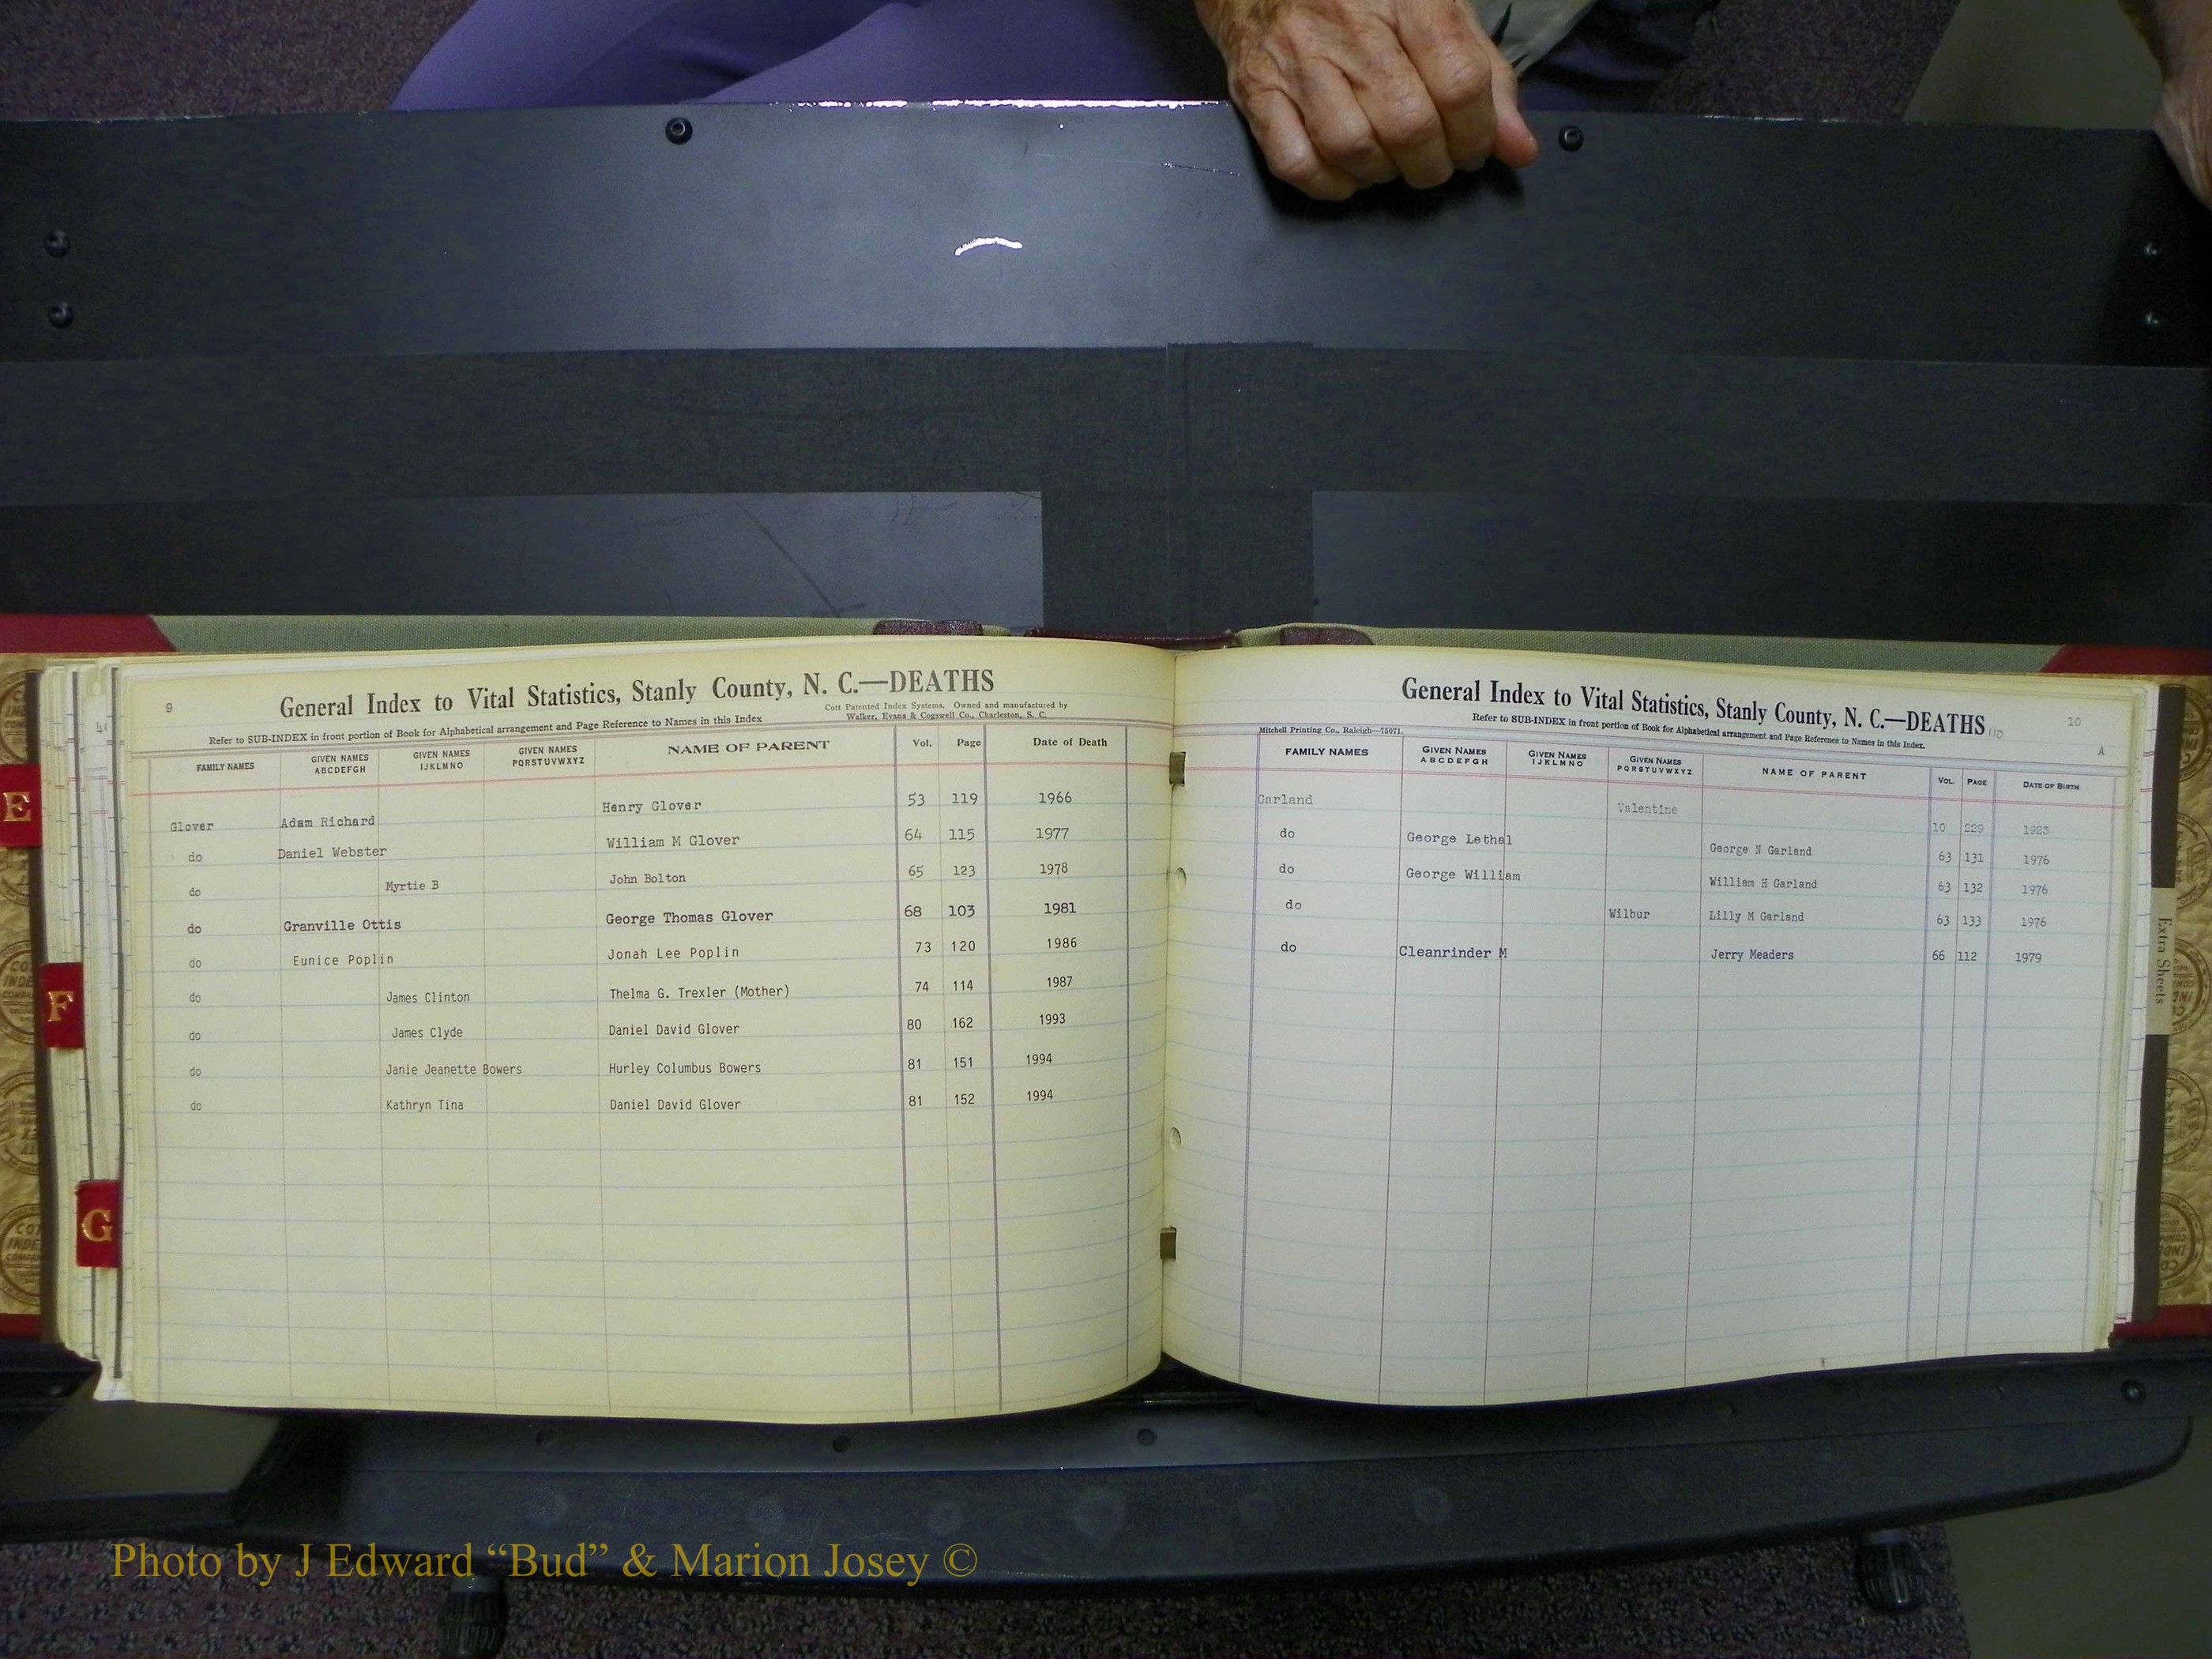 9
General Index to Vital Statistics, Stanly County, N. C.—DEATHS
Cott Patented Index Systems. Owned and manufactured by
Walker, Evans & Cogswell Co., Charleston, S. C.
Refer to SUB-INDEX in front portion of Book for Alphabetical arrangement and Page Reference to Names in this Index
FAMILY NAMES GIVEN NAMES ABCDEFGH GIVEN NAMES IJKLMNO GIVEN NAMES PQRSTUVWXYZ NAME OF PARENT Vol. Page Date of Death
Glover Adam Richard Henry Glover 53 119 1966
do Daniel Webster William M Glover 64 115 1977
do Myrtie B John Bolton 65 123 1978
do Granville Ottis George Thomas Glover 68 103 1981
do Eunice Poplin Jonah Lee Poplin 73 120 1986
do James Clinton Thelma G. Trexler (Mother) 74 114 1987
do James Clyde Daniel David Glover 80 162 1993
do Janie Jeanette Bowers Hurley Columbus Bowers 81 151 1994
do Kathryn Tina Daniel David Glover 81 152 1994
E
F
G
General Index to Vital Statistics, Stanly County, N. C.—DEATHS 110
10
A
Refer to SUB-INDEX in front portion of Book for Alphabetical arrangement and Page Reference to Names in this Index.
Mitchell Printing Co., Raleigh—75071.
FAMILY NAMES GIVEN NAMES ABCDEFGH GIVEN NAMES IJKLMNO GIVEN NAMES PQRSTUVWXYZ NAME OF PARENT VOL. PAGE DATE OF BIRTH
Garland Valentine 10 229 1923
do George Lethal George N Garland 63 131 1976
do George William William H Garland 63 132 1976
do Wilbur Lilly M Garland 63 133 1976
do Cleanrinder M Jerry Meaders 66 112 1979
Extra Sheets
Photo by J Edward “Bud” & Marion Josey ©